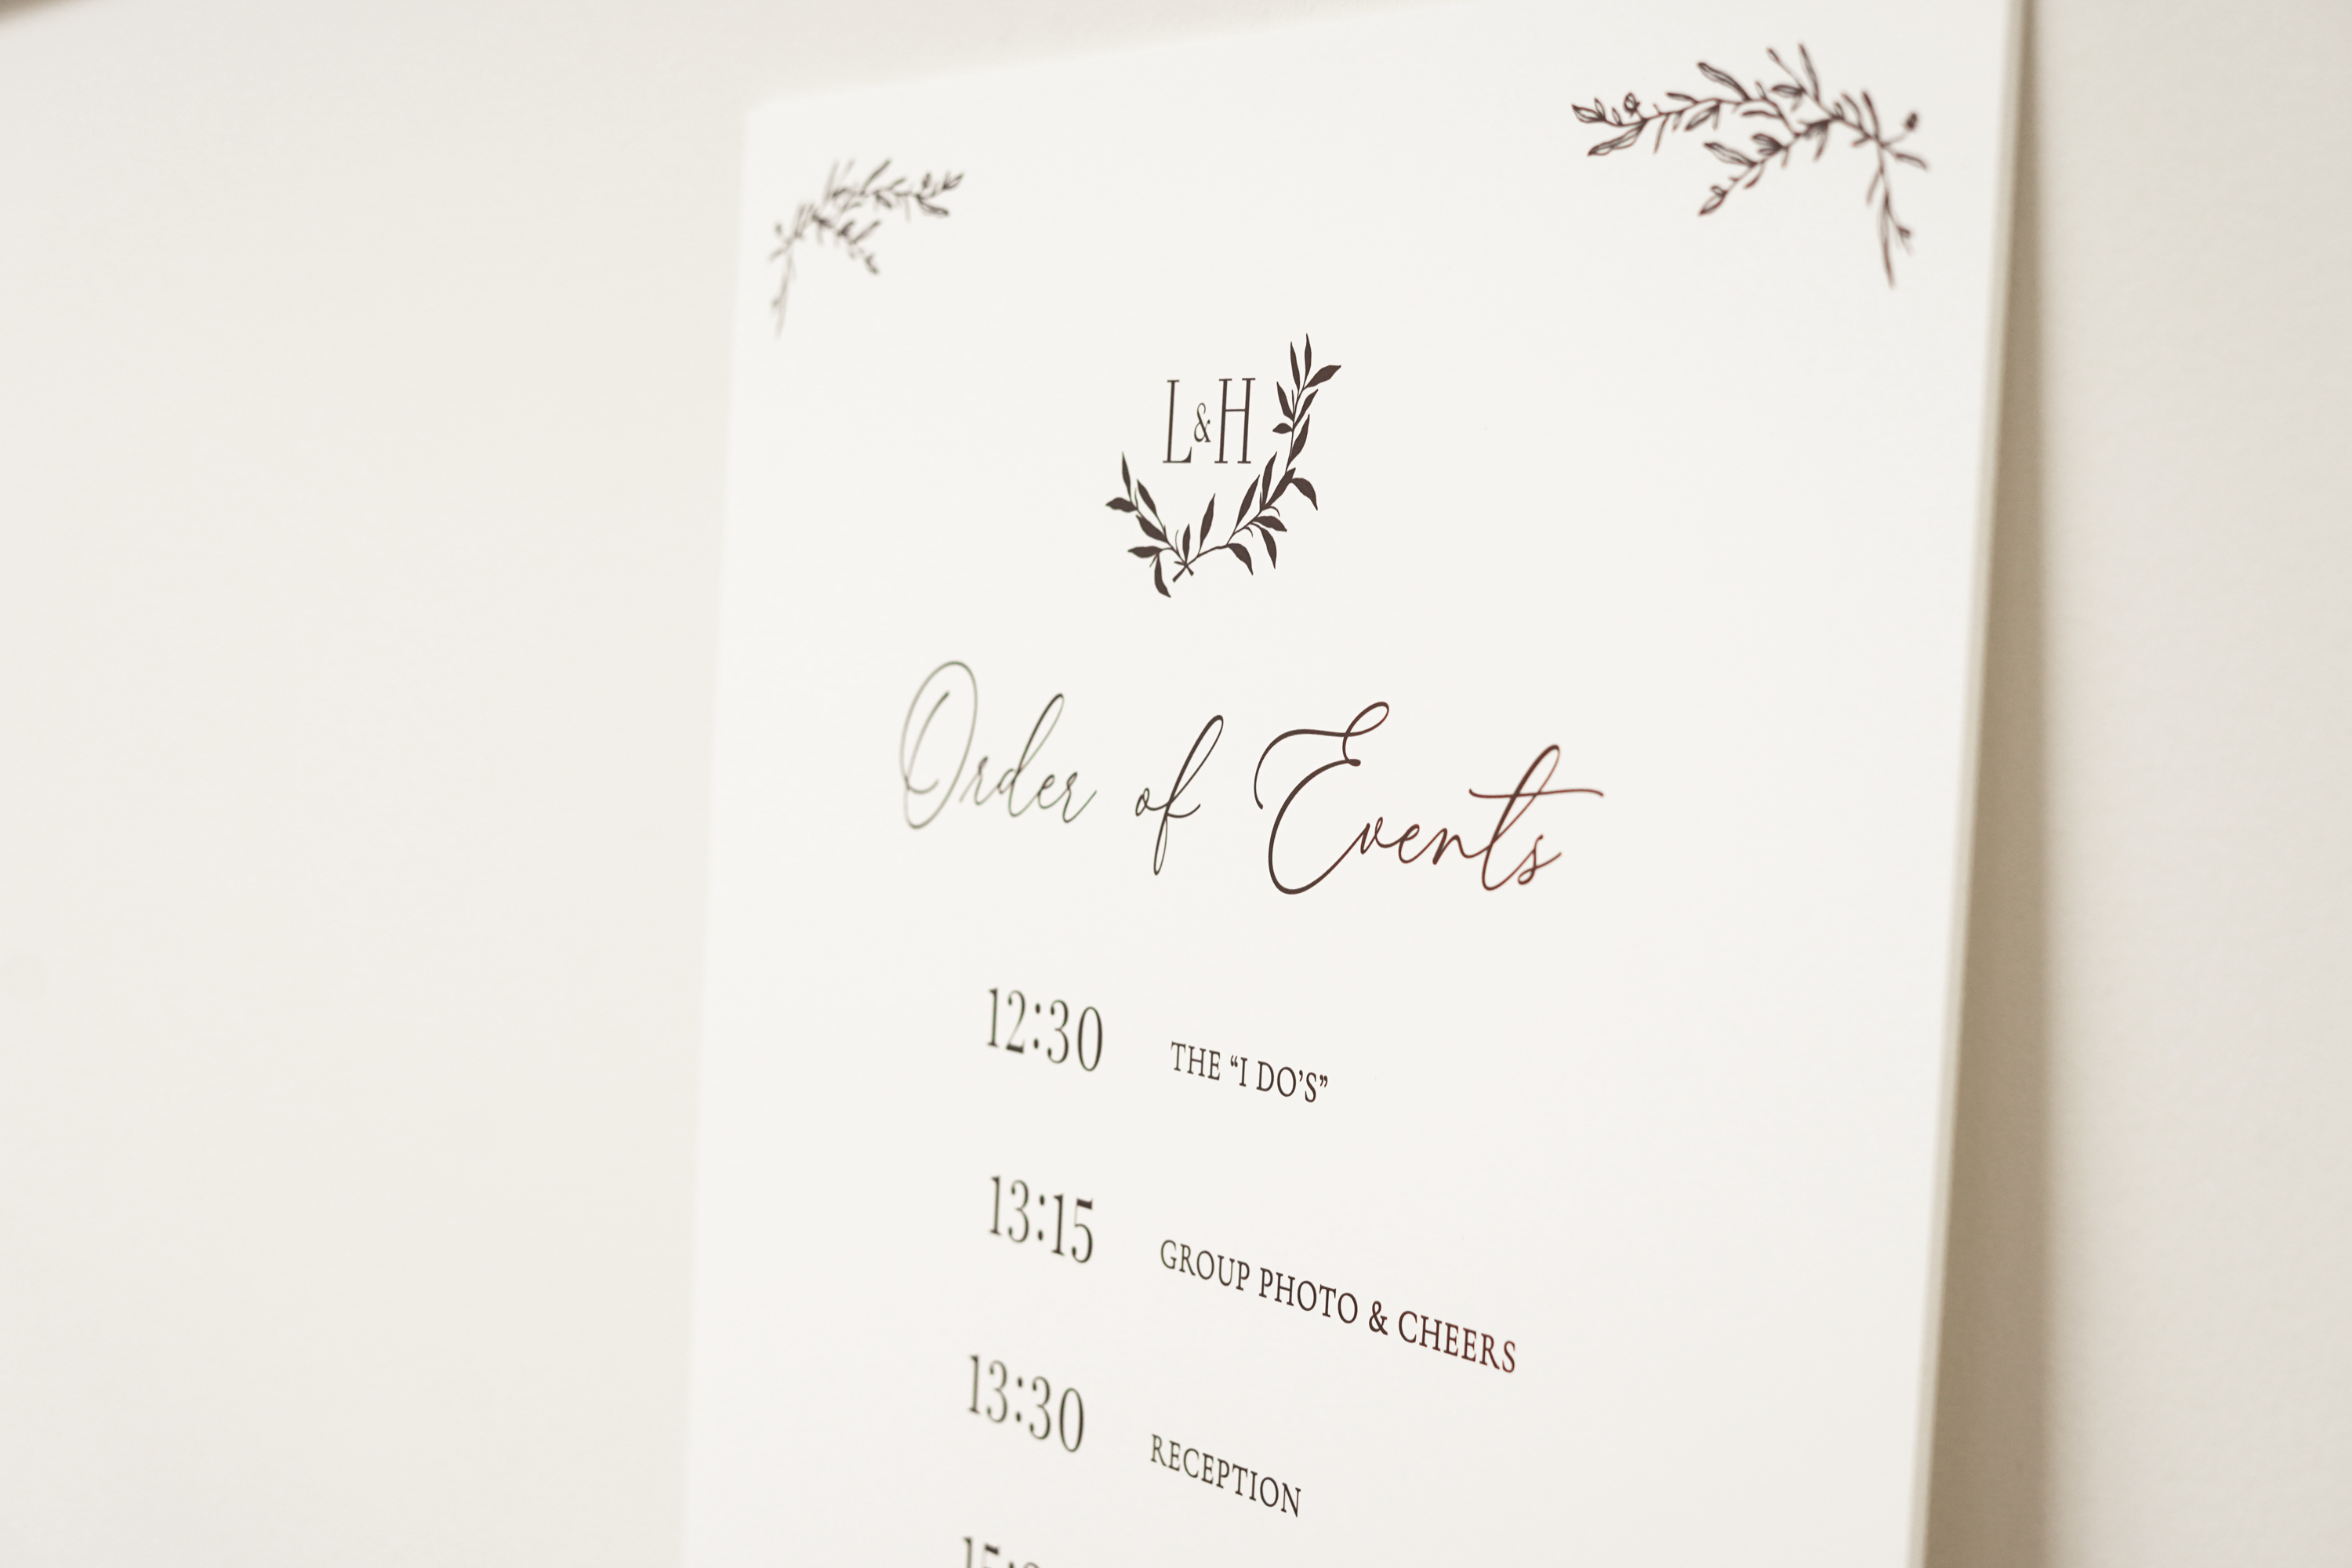 L&H
Order of Events
12:30 THE “I DO’S”
13:15 GROUP PHOTO & CHEERS
13:30 RECEPTION